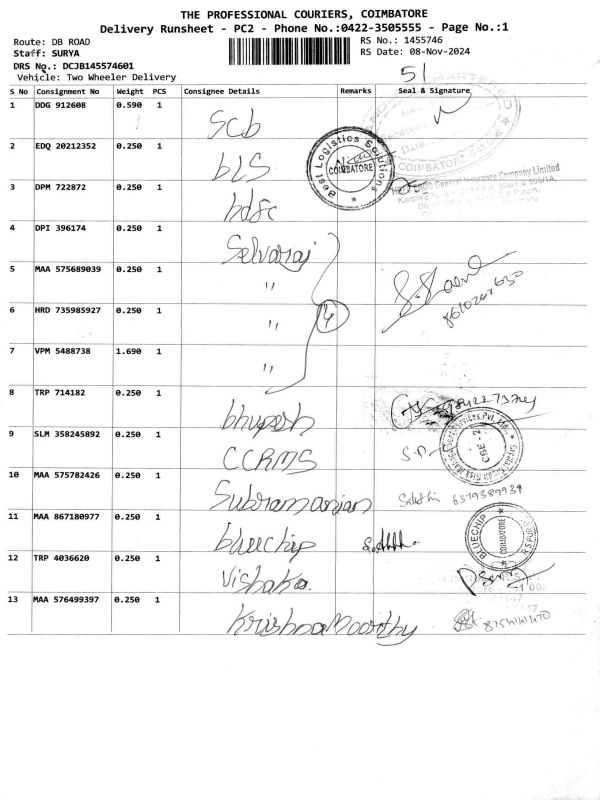 THE PROFESSIONAL COURIERS, COIMBATORE
Delivery Runsheet - PC2 - Phone No.:0422-3505555 - Page No.:1
Route: DB ROAD RS No.: 1455746
Staff: SURYA RS Date: 08-Nov-2024
DRS No.: DCJB145574601
Vehicle: Two Wheeler Delivery
51
S No Consignment No Weight PCS Consignee Details Remarks Seal & Signature
1 DDG 912608 0.590 1 Scb
COIMBATORE
2 EDQ 20212352 0.250 1 bLS
Best Logistics Solutions COIMBATORE
General Insurance Company Limited
3 DPM 722872 0.250 1 hdfc
4 DPI 396174 0.250 1 Selvaraj
5 MAA 575689039 0.250 1 "
6 HRD 735985927 0.250 1 " 4
7 VPM 5488738 1.690 1 "
8 TRP 714182 0.250 1 bhupesh
9 SLM 358245892 0.250 1 CCRMS S.P.
CBE - 2
10 MAA 575782426 0.250 1 Subramanian 6379389939
11 MAA 867180977 0.250 1 bluechip
BLUECHIP COIMBATORE
12 TRP 4036620 0.250 1 Vishaka
13 MAA 576499397 0.250 1 Krishnamoorthy